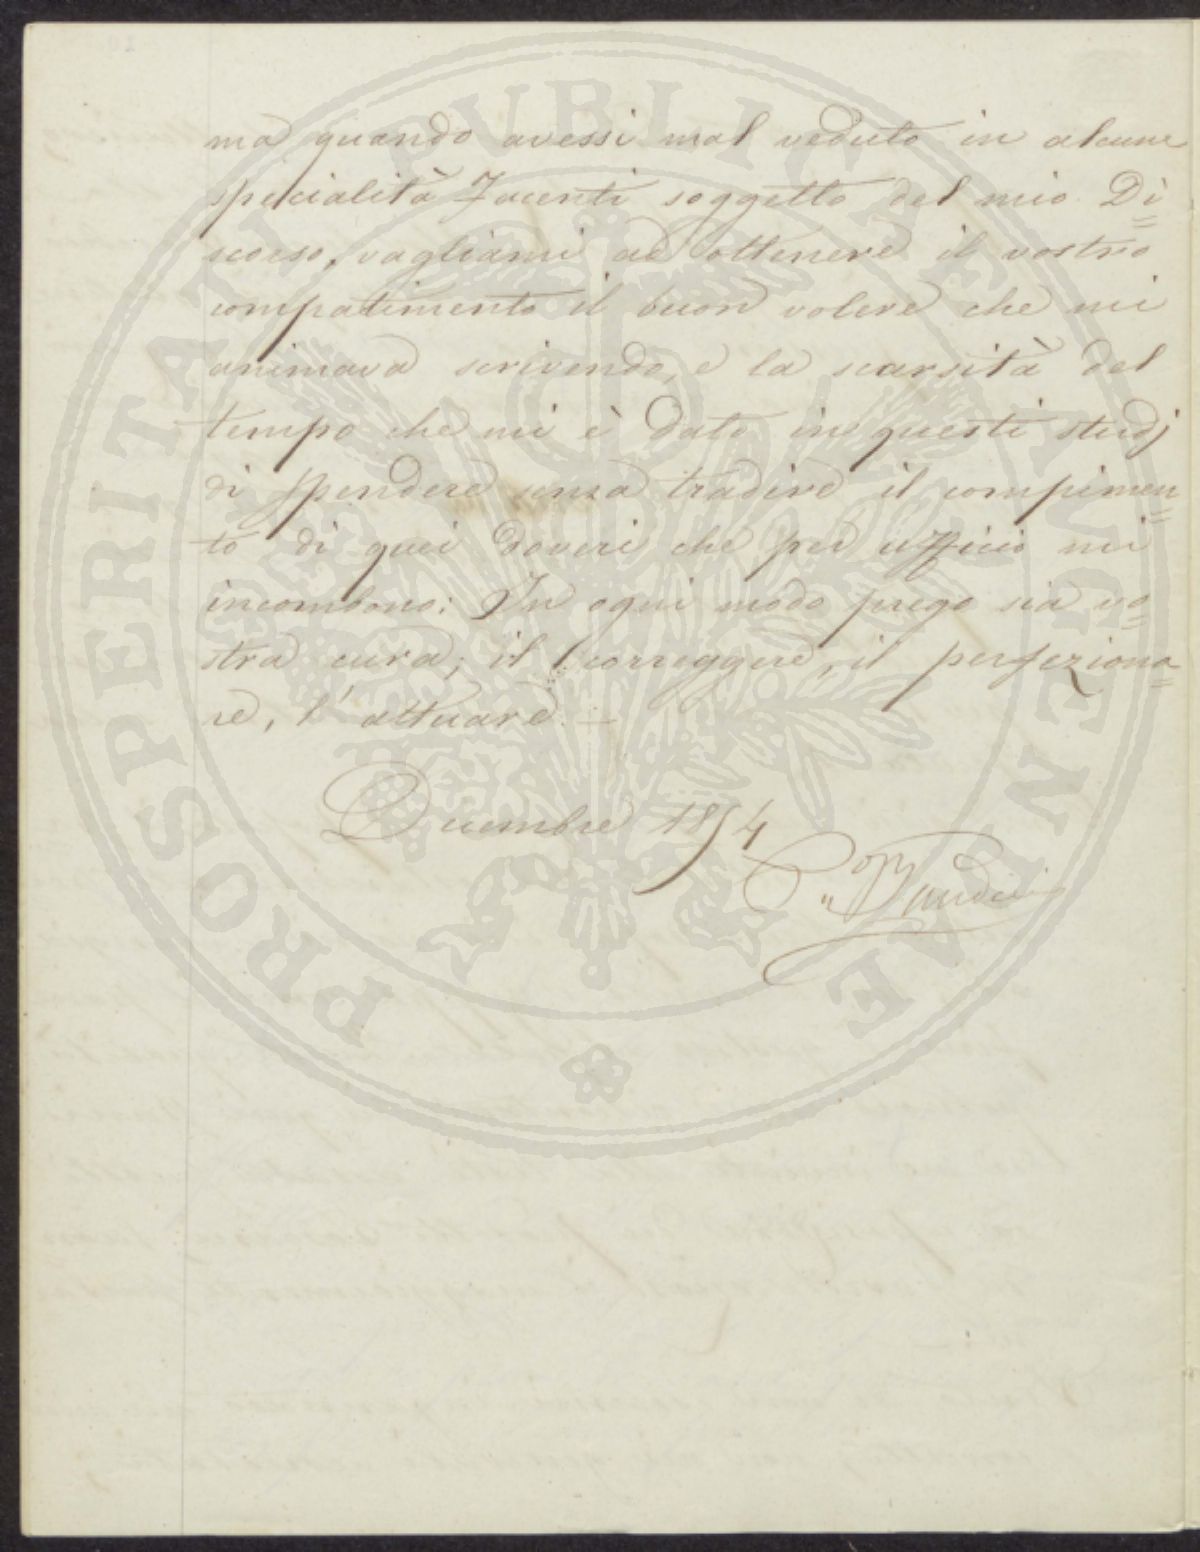 ma quando avessi mal veduto in alcune
specialità Facenti soggetto del mio Di=
scorso, vagliami ad ottenere il vostro
compatimento il buon volere che mi
animava scrivendo, e la scarsità del
tempo che mi è dato in questi studj
di spendere senza tradire il compimen=
to di quei doveri che per ufficio mi
incombono: In ogni modo prego sia vo=
stra cura; il correggere, il perfeziona=
re, l'attuare. —
Dicembre 1854
PROSPERITATI PUBLICAE AUGENDAE